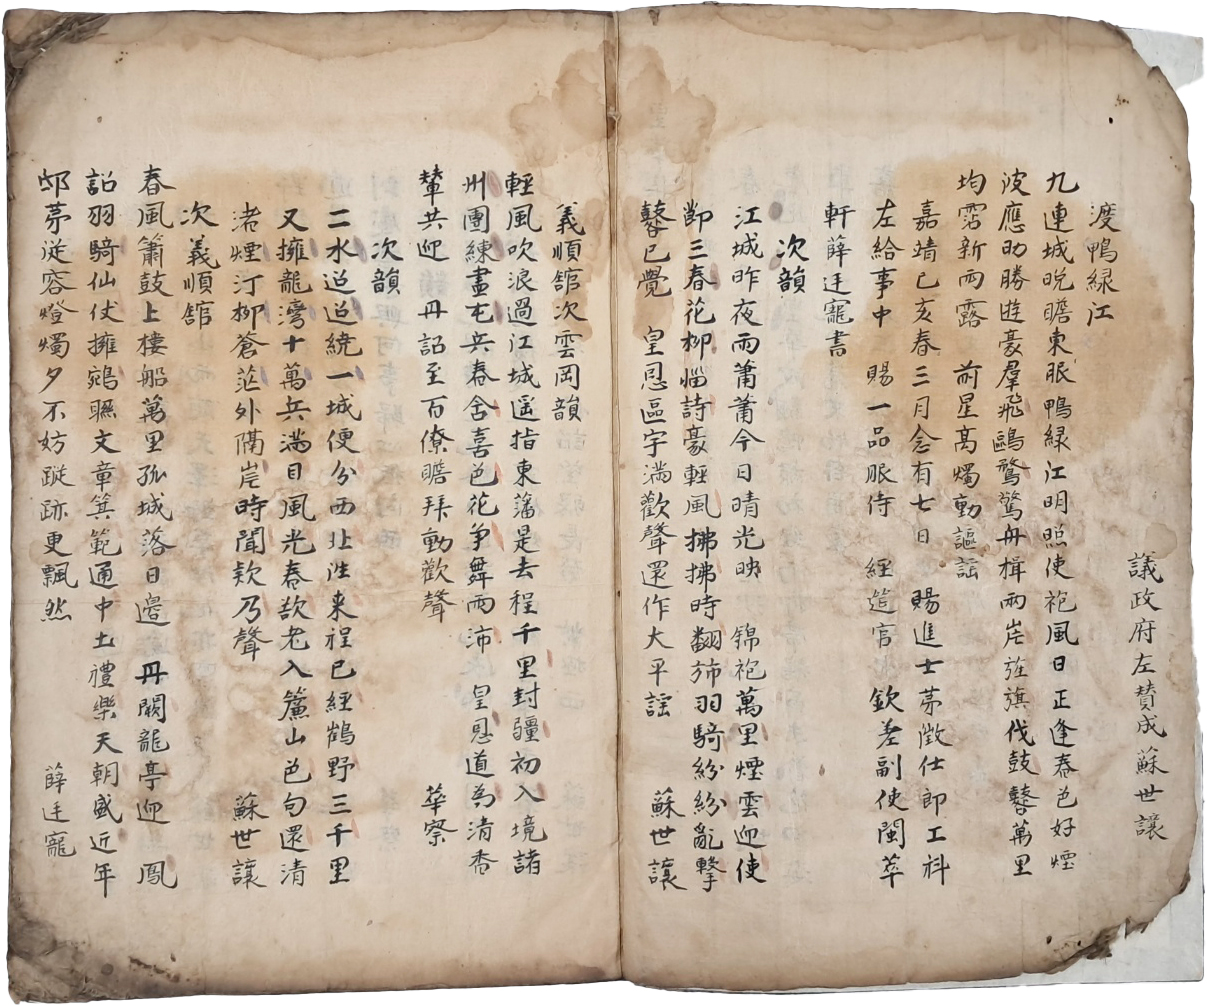 議政府左賛成蘇世讓
渡鴨緑江
九連城晩瞻東眼鴨緑江明照使袍風日正逢春色好煙
波應助勝遊豪羣飛鷗鷺驚舟楫兩岸旌旗伐鼓鼛萬里
均霑新雨露 前星高燭動謳謡
嘉靖己亥春三月念有七日 賜進士茅徴仕郎工科
左給事中 賜一品服侍 經筵官 欽差副使閩萃
軒薛廷寵書
次韻
江城昨夜雨蕭蕭今日晴光映 錦袍萬里煙雲迎使
節三春花柳惱詩豪輕風拂拂時翻斾羽騎紛紛亂擊
鼛已覺 皇恩區宇満歡聲還作大平謡 蘇世讓
義順舘次雲岡韻
輕風吹浪過江城遥指東藩是去程千里封疆初入境諸
州團練盡屯兵春含喜色花争舞雨沛 皇恩道為清夹
輦共迎 丹詔至百僚瞻拜動歡聲 華察
次韻
二水迢迢繞一城便分西北往来程已經鶴野三千里
又擁龍灣十萬兵満目風光春欲老入簾山色句還清
渚煙汀柳蒼茫外隔岸時聞欸乃聲 蘇世讓
次義順舘
春風簫鼓上樓船萬里孤城落日邊 丹闕龍亭迎 鳳
詔羽騎仙仗擁鵷聮文章箕範通中土禮樂天朝盛近年
邸茅従容燈燭夕不妨蹤跡更飄然 薛廷寵